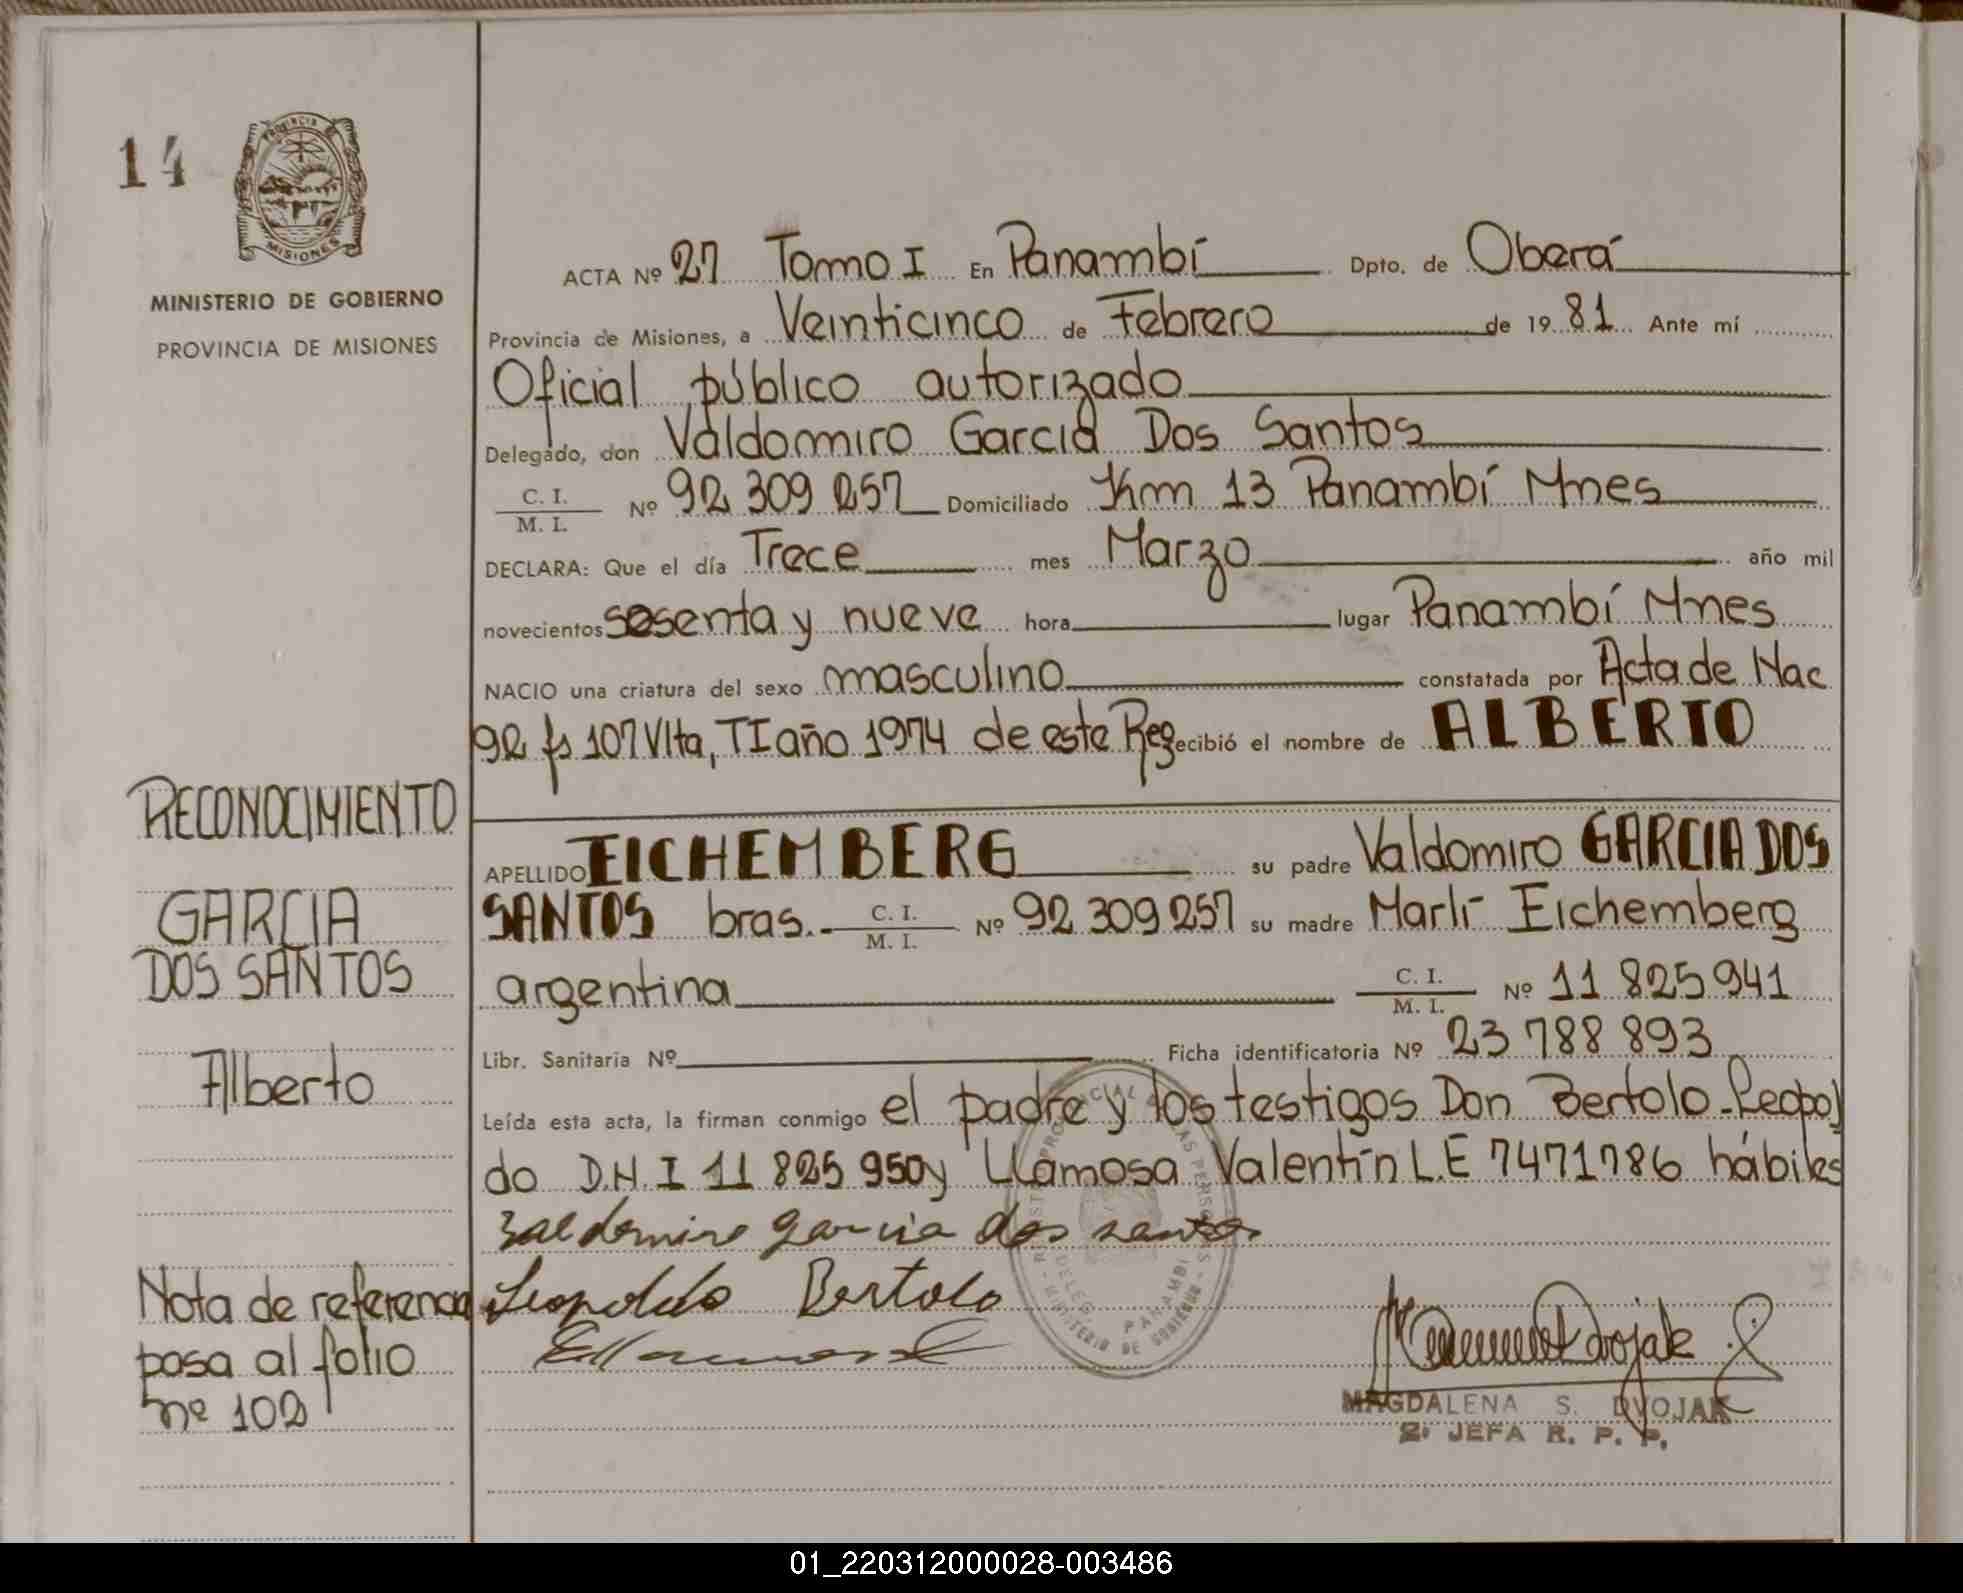 14
PROVINCIA DE
MISIONES
MINISTERIO DE GOBIERNO
PROVINCIA DE MISIONES
ACTA Nº 27 Tomo I En Panambí Dpto. de Oberá
Provincia de Misiones, a Veinticinco de Febrero de 19 81 Ante mí
Oficial público autorizado
Delegado, don Valdomiro Garcia Dos Santos
C. I.
M. I. Nº 92 309 257 Domiciliado Km 13 Panambí Mnes
DECLARA: Que el día Trece mes Marzo año mil
novecientos sesenta y nueve hora lugar Panambí Mnes
NACIO una criatura del sexo masculino constatada por Acta de Nac
92 fs 107 Vlta, TI año 1974 de este Reg ecibió el nombre de ALBERTO
RECONOCIMIENTO
GARCIA
DOS SANTOS
Alberto
APELLIDO EICHEMBERG su padre Valdomiro GARCIA DOS
SANTOS bras.- C. I.
M. I. Nº 92 309 257 su madre Marlí Eichemberg
argentina C. I.
M. I. Nº 11 825 941
Libr. Sanitaria Nº Ficha identificatoria Nº 23 788 893
Leída esta acta, la firman conmigo el padre y los testigos Don Bertolo Leopol
do D.N.I 11 825 950 y Llamosa Valentín L.E 7471786 hábiles
Valdomiro garcia dos santos
Leopoldo Bertolo
PANAMBI
MINISTERIO DE GOBIERNO
Nota de referencia
pasa al folio
nº 102
MAGDALENA S. DVOJAK
2º JEFA R. P. P.
01_220312000028-003486